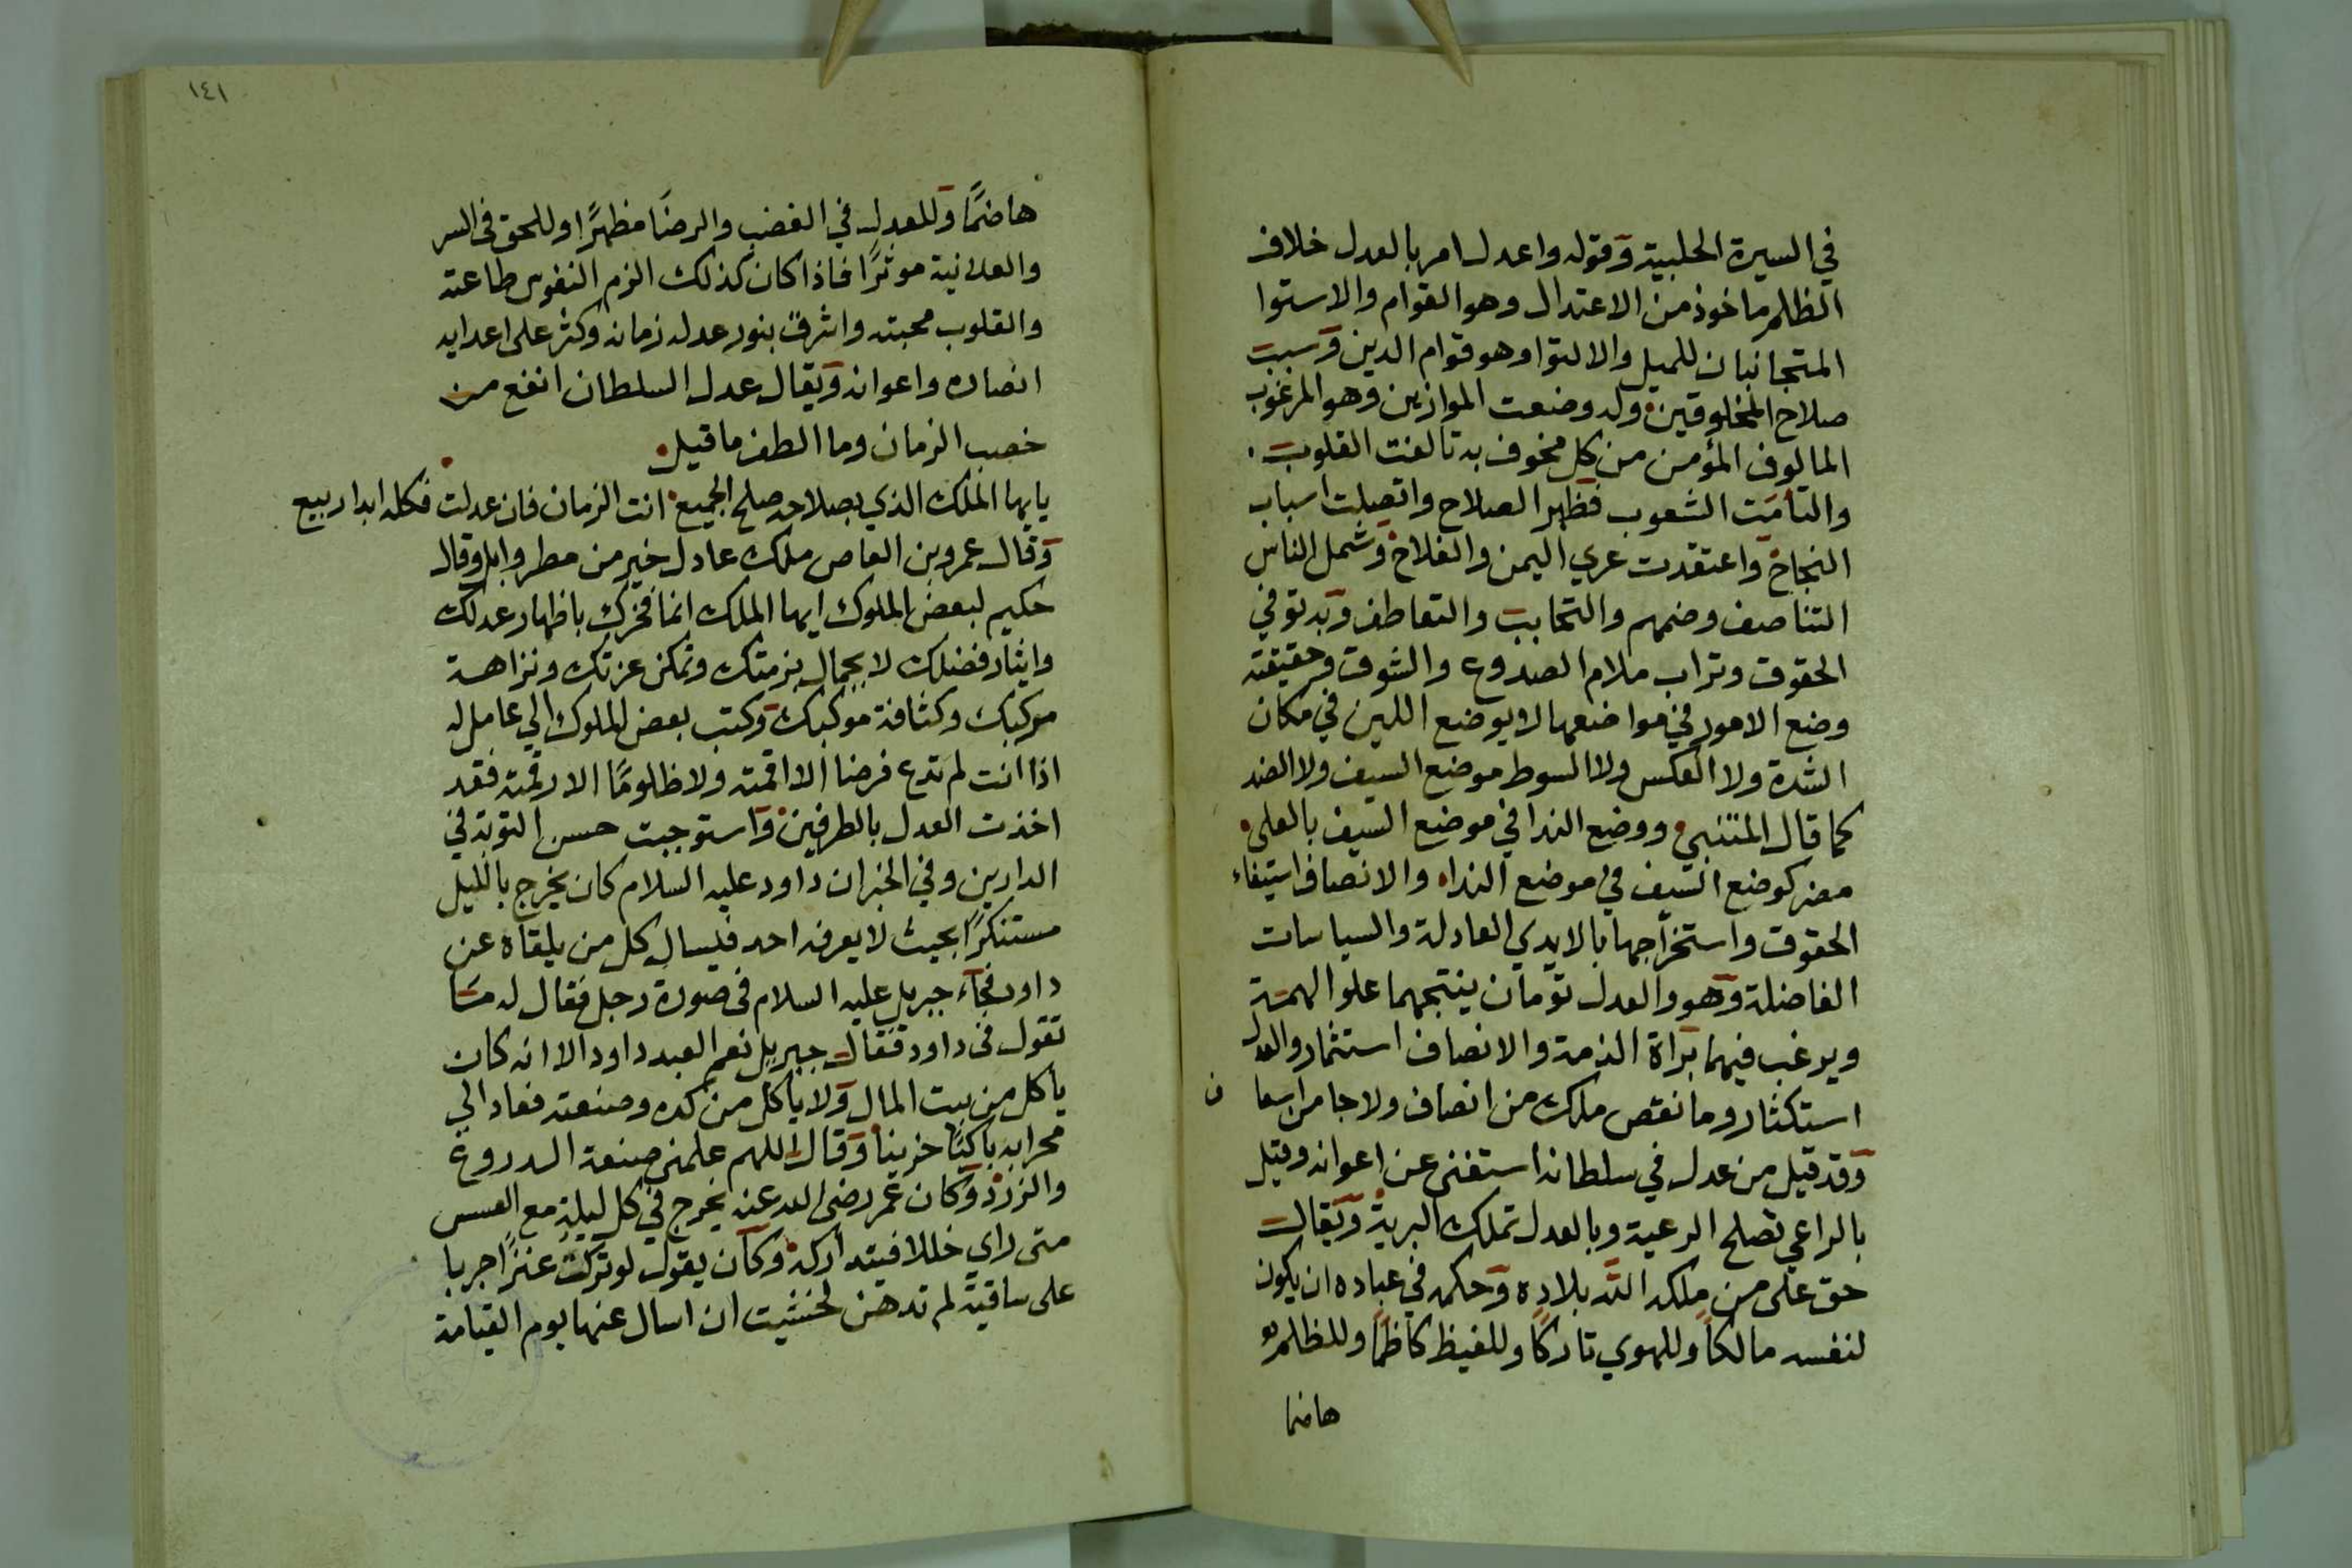 في السيرة الحلبية وقوله واعدل امر بالعدل خلاف
الظلم ماخوذ من الاعتدال وهو القوام والاستوا
المتجانبان للميل والالتوا وهو قوام الدين وسبب
صلاح المخلوقين وله وضعت الموازين وهو المرغوب
المالوف المؤمن من كل مخوف به تالفت القلوب
والتأمت الشعوب فظهر الصلاح واتصلت اسباب
النجاح واعتقدت عري اليمن والفلاح وشمل الناس
التناصف وضمهم والتحابب والتعاطف وبه توفي
الحقوق وتراب ملام الصدوع والشوق وحقيقته
وضع الامور في مواضعها لا يوضع اللين في مكان
الشدة ولا العكس ولا السوط موضع السيف ولا الضد
كما قال المتنبي ووضع الندا في موضع السيف بالعلى
مضر كوضع السيف في موضع النداه والانصاف استيفاء
الحقوق واستخراجها بالايدي العادلة والسياسات
الفاضلة وهو والعدل تومان ينتجهما علو الهمة
ويرغب فيهما براة الذمة والانصاف استثمار والعدل
استكثار وما نقص ملك من انصاف ولا جا من اسعا ف
وقد قيل من عدل في سلطانه استغنى عن اعوانه وقيل
بالراعي تصلح الرعية وبالعدل تملك البرية ويقال
حق على من ملكه الله بلاده وحكمه في عباده ان يكون
لنفسه مالكا وللهوي تاركا وللغيظ كاظما وللظلم
هاضما
١٤١
هاضما وللعدل في الغضب والرضا مظهرا وللحق في السر
والعلانية موثرا فاذا كان كذلك الزم النفوس طاعته
والقلوب محبته واشرق بنور عدله زمانه وكثر على اعدايه
انصاره واعوانه ويقال عدل السلطان انفع من
خصب الزمان وما الطف ما قيل
يايها الملك الذي بصلاحه صلح الجميع انت الزمان فان عدلت فكله ابدا ربيع
وقال عمرو بن العاص ملك عادل خير من مطر وابل وقال
حكيم لبعض الملوك ايها الملك انما فخرك باظهار عدلك
وايثار فضلك لا بجمال بزمتك وتمكن عزتك ونزاهة
مركبك وكثافة موكبك وكتب بعض الملوك الي عامل له
اذا انت لم تدع فرضا الا اقمته ولا ظلوما الا رقمته فقد
اخذت العدل بالطرفين واستوجبت حسن التوبة في
الدارين وفي الخبر ان داود عليه السلام كان يخرج بالليل
مستنكرا بحيث لا يعرفه احد فيسال كل من يلقاه عن
داود فجآء جبريل عليه السلام في صورة رجل فقال له ما
تقول في داود فقال جبريل نعم العبد داود الا انه كان
ياكل من بيت المال ولا ياكل من كده وصنعته فعاد الي
محرابه باكيا حزينا وقال اللهم علمني صنعة الدروع
والزرد وكان عمر رضي الله عنه يخرج في كل ليلة مع العسس
متى راي خللا فيتداركه وكان يقول لو تركت عنزا جربا
على ساقية لم تدهن لخشيت ان اسال عنها يوم القيامة